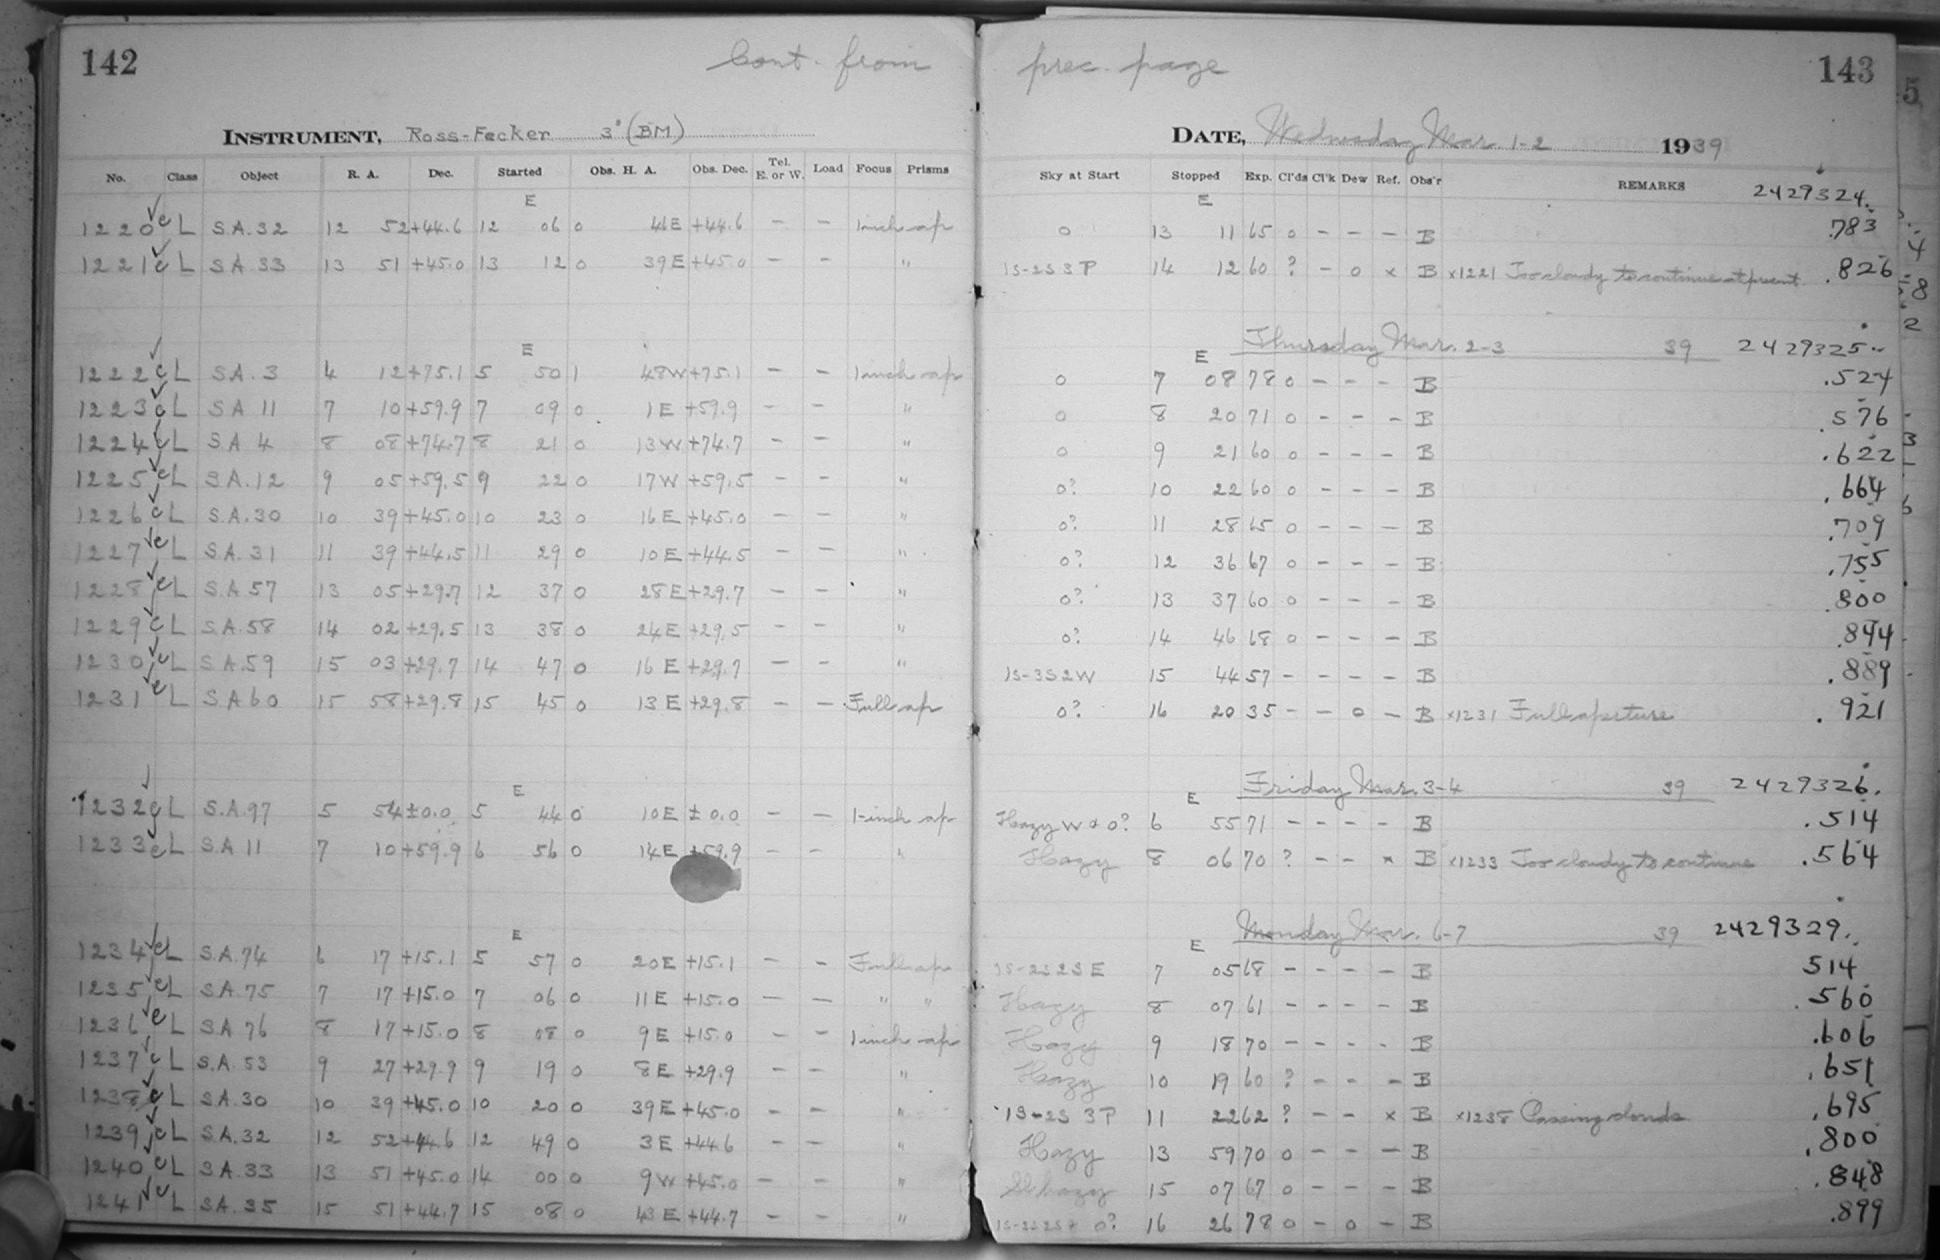 142
Cont. from
INSTRUMENT, Ross-Fecker 3" (BM)
No. Class Object R. A. Dec. Started Obs. H. A. Obs. Dec. Tel. E. or W. Load Focus Prisms
E
1220 c L S.A.32 12 52 +44.6 12 06 0 46E +44.6 – – 1inch ap
1221 c L S.A 33 13 51 +45.0 13 12 0 39E +45.0 – – "
E
1222 c L S.A. 3 4 12 +75.1 5 50 1 48W +75.1 – – 1inch ap
1223 c L S A 11 7 10 +59.9 7 09 0 1E +59.9 – – "
1224 c L S A 4 8 08 +74.7 8 21 0 13W +74.7 – – "
1225 c L S A.12 9 05 +59.5 9 22 0 17W +59.5 – – "
1226 c L S.A.30 10 39 +45.0 10 23 0 16E +45.0 – – "
1227 c L S.A. 31 11 39 +44.5 11 29 0 10E +44.5 – – "
1228 c L S.A 57 13 05 +29.7 12 37 0 28E +29.7 – – "
1229 c L S.A.58 14 02 +29.5 13 38 0 24E +29.5 – – "
1230 c L S.A.59 15 03 +29.7 14 47 0 16E +29.7 – – "
1231 c L S A 60 15 58 +29.8 15 45 0 13E +29.8 – – Full ap
E
1232 c L S.A.97 5 54 ±0.0 5 44 0 10E ±0.0 – – 1-inch ap
1233 c L S.A 11 7 10 +59.9 6 56 0 14E +59.9 – – "
E
1234 c L S.A.74 6 17 +15.1 5 57 0 20E +15.1 – – Full ap
1235 c L S.A.75 7 17 +15.0 7 06 0 11E +15.0 – – " "
1236 c L S.A 76 8 17 +15.0 8 08 0 9E +15.0 – – 1inch ap
1237 c L S.A. 53 9 27 +29.9 9 19 0 8E +29.9 – – "
1238 c L S.A. 30 10 39 +45.0 10 20 0 39E +45.0 – – "
1239 c L S.A. 32 12 52 +44.6 12 49 0 3E +44.6 – – "
1240 c L S A.33 13 51 +45.0 14 00 0 9W +45.0 – – "
1241 c L S A. 35 15 51 +44.7 15 08 0 43E +44.7 – – "
prec. page
143
DATE, Wednesday Mar. 1-2 1939
Sky at Start Stopped Exp. Cl'ds Cl'k Dew Ref. Obs'r REMARKS 2429324.
E
0 13 11 65 0 – – – B .783
1S-2S 3P 14 12 60 ? – 0 x B x1221 Too cloudy to continue at present .826
Thursday Mar. 2-3 39 2429325
E
0 7 08 78 0 – – – B .524
0 8 20 71 0 – – – B .576
0 9 21 60 0 – – – B .622
0? 10 22 60 0 – – – B .664
0? 11 28 65 0 – – – B .709
0? 12 36 67 0 – – – B .755
0? 13 37 60 0 – – – B .800
0? 14 46 68 0 – – – B .844
1S-3S2W 15 44 57 – – – – B .889
0? 16 20 35 – – 0 – B x1231 Full aperture .921
Friday Mar. 3-4 39 2429326.
E
Hazy W & 0? 6 55 71 – – – – B .514
Hazy 8 06 70 ? – – x B x1233 Too cloudy to continue .564
Monday Mar. 6-7 39 2429329.
E
1S-2S2SE 7 05 68 – – – – B 514
Hazy 8 07 61 – – – – B .560
Hazy 9 18 70 – – – – B .606
Hazy 10 19 60 ? – – – B .651
1S-2S 3P 11 22 62 ? – – x B x1238 Passing clouds .695
Hazy 13 59 70 0 – – – B .800
Sl hazy 15 07 67 0 – – – B .848
0? 16 26 78 0 – 0 – B .899